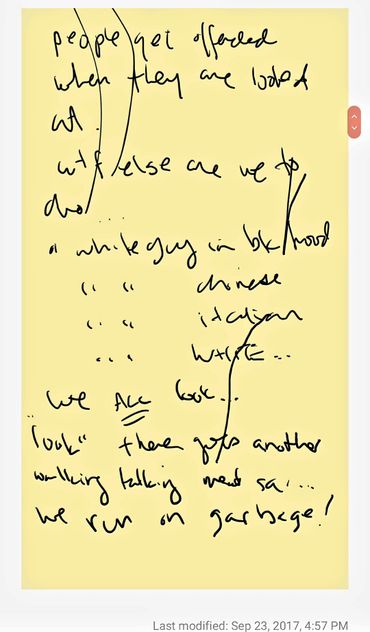 people get offended
when they are looked
at.
wtf else are we to
do....
a white guy in blk hood
" " chinese
" " italian
" " WHITE...
we ALL look...
"look" there goes another
walking talking meat sa...
we run on garbage!
Last modified: Sep 23, 2017, 4:57 PM